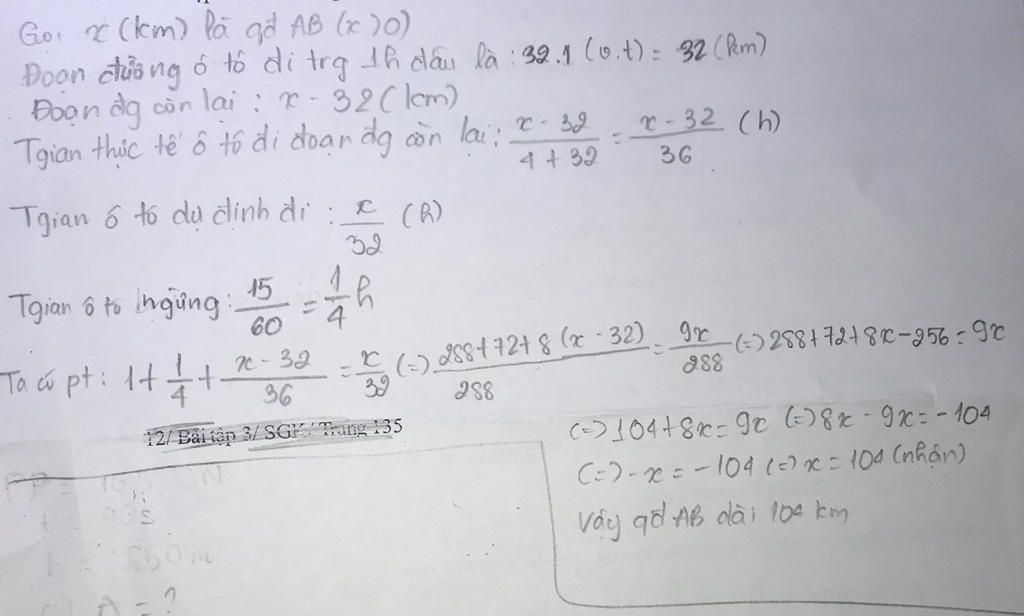 Gọi x (km) là qđ AB (x > 0)
Đoạn đường ô tô đi trg 1h đầu là : 32.1 (v.t) = 32 (km)
Đoạn đg còn lại : x - 32 (km)
Tgian thực tế ô tô đi đoạn đg còn lại: \frac{x - 32}{4 + 32} = \frac{x - 32}{36} (h)
Tgian ô tô dự định đi : \frac{x}{32} (h)
Tgian ô tô ngừng : \frac{15}{60} = \frac{1}{4} h
Ta có pt : 1 + \frac{1}{4} + \frac{x - 32}{36} = \frac{x}{32} (=) \frac{288 + 72 + 8 (x - 32)}{288} = \frac{9x}{288} (=) 288 + 72 + 8x - 256 = 9x
(=) 104 + 8x = 9x (=) 8x - 9x = -104
(=) -x = -104 (=) x = 104 (nhận)
Vậy qđ AB dài 104 km
12/ Bài tập 3/ SGK/ Trang 135
A = ?